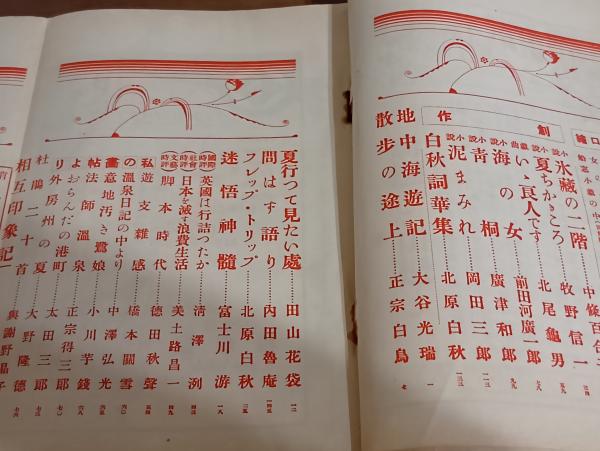 口繪
中條百合子
小說 氷藏の二階……牧野信一
小說 夏ちかきころ……北尾龜男
戲曲 いゝ良人です……前田河廣一郎
創作
小說 海の女……廣津和郎
小說 靑桐……岡田三郎
小說 泥まみれ
白秋詞華集……北原白秋
地中海遊記……大谷光瑞
散步の途上……正宗白鳥
夏行つて見たい處……田山花袋
問はず語り……內田魯庵
フレップ・トリップ……北原白秋
迷悟神髓……富士川游
國際時評 英國は行詰つたか……淸澤洌
社會時評 日本を滅す浪費生活……美土路昌一
文藝時評 脚本時代……德田秋聲
私遊支雜感……橋本關雪
の溫泉日記の中より……中澤弘光
畫意地汚さ鷺娘……小川芋錢
帖法師溫泉
よおらんだの港町……正宗得三郎
り外房州の夏……太田三郎
杜鵑二十首……大野隆德
相互印象記……與謝野晶子